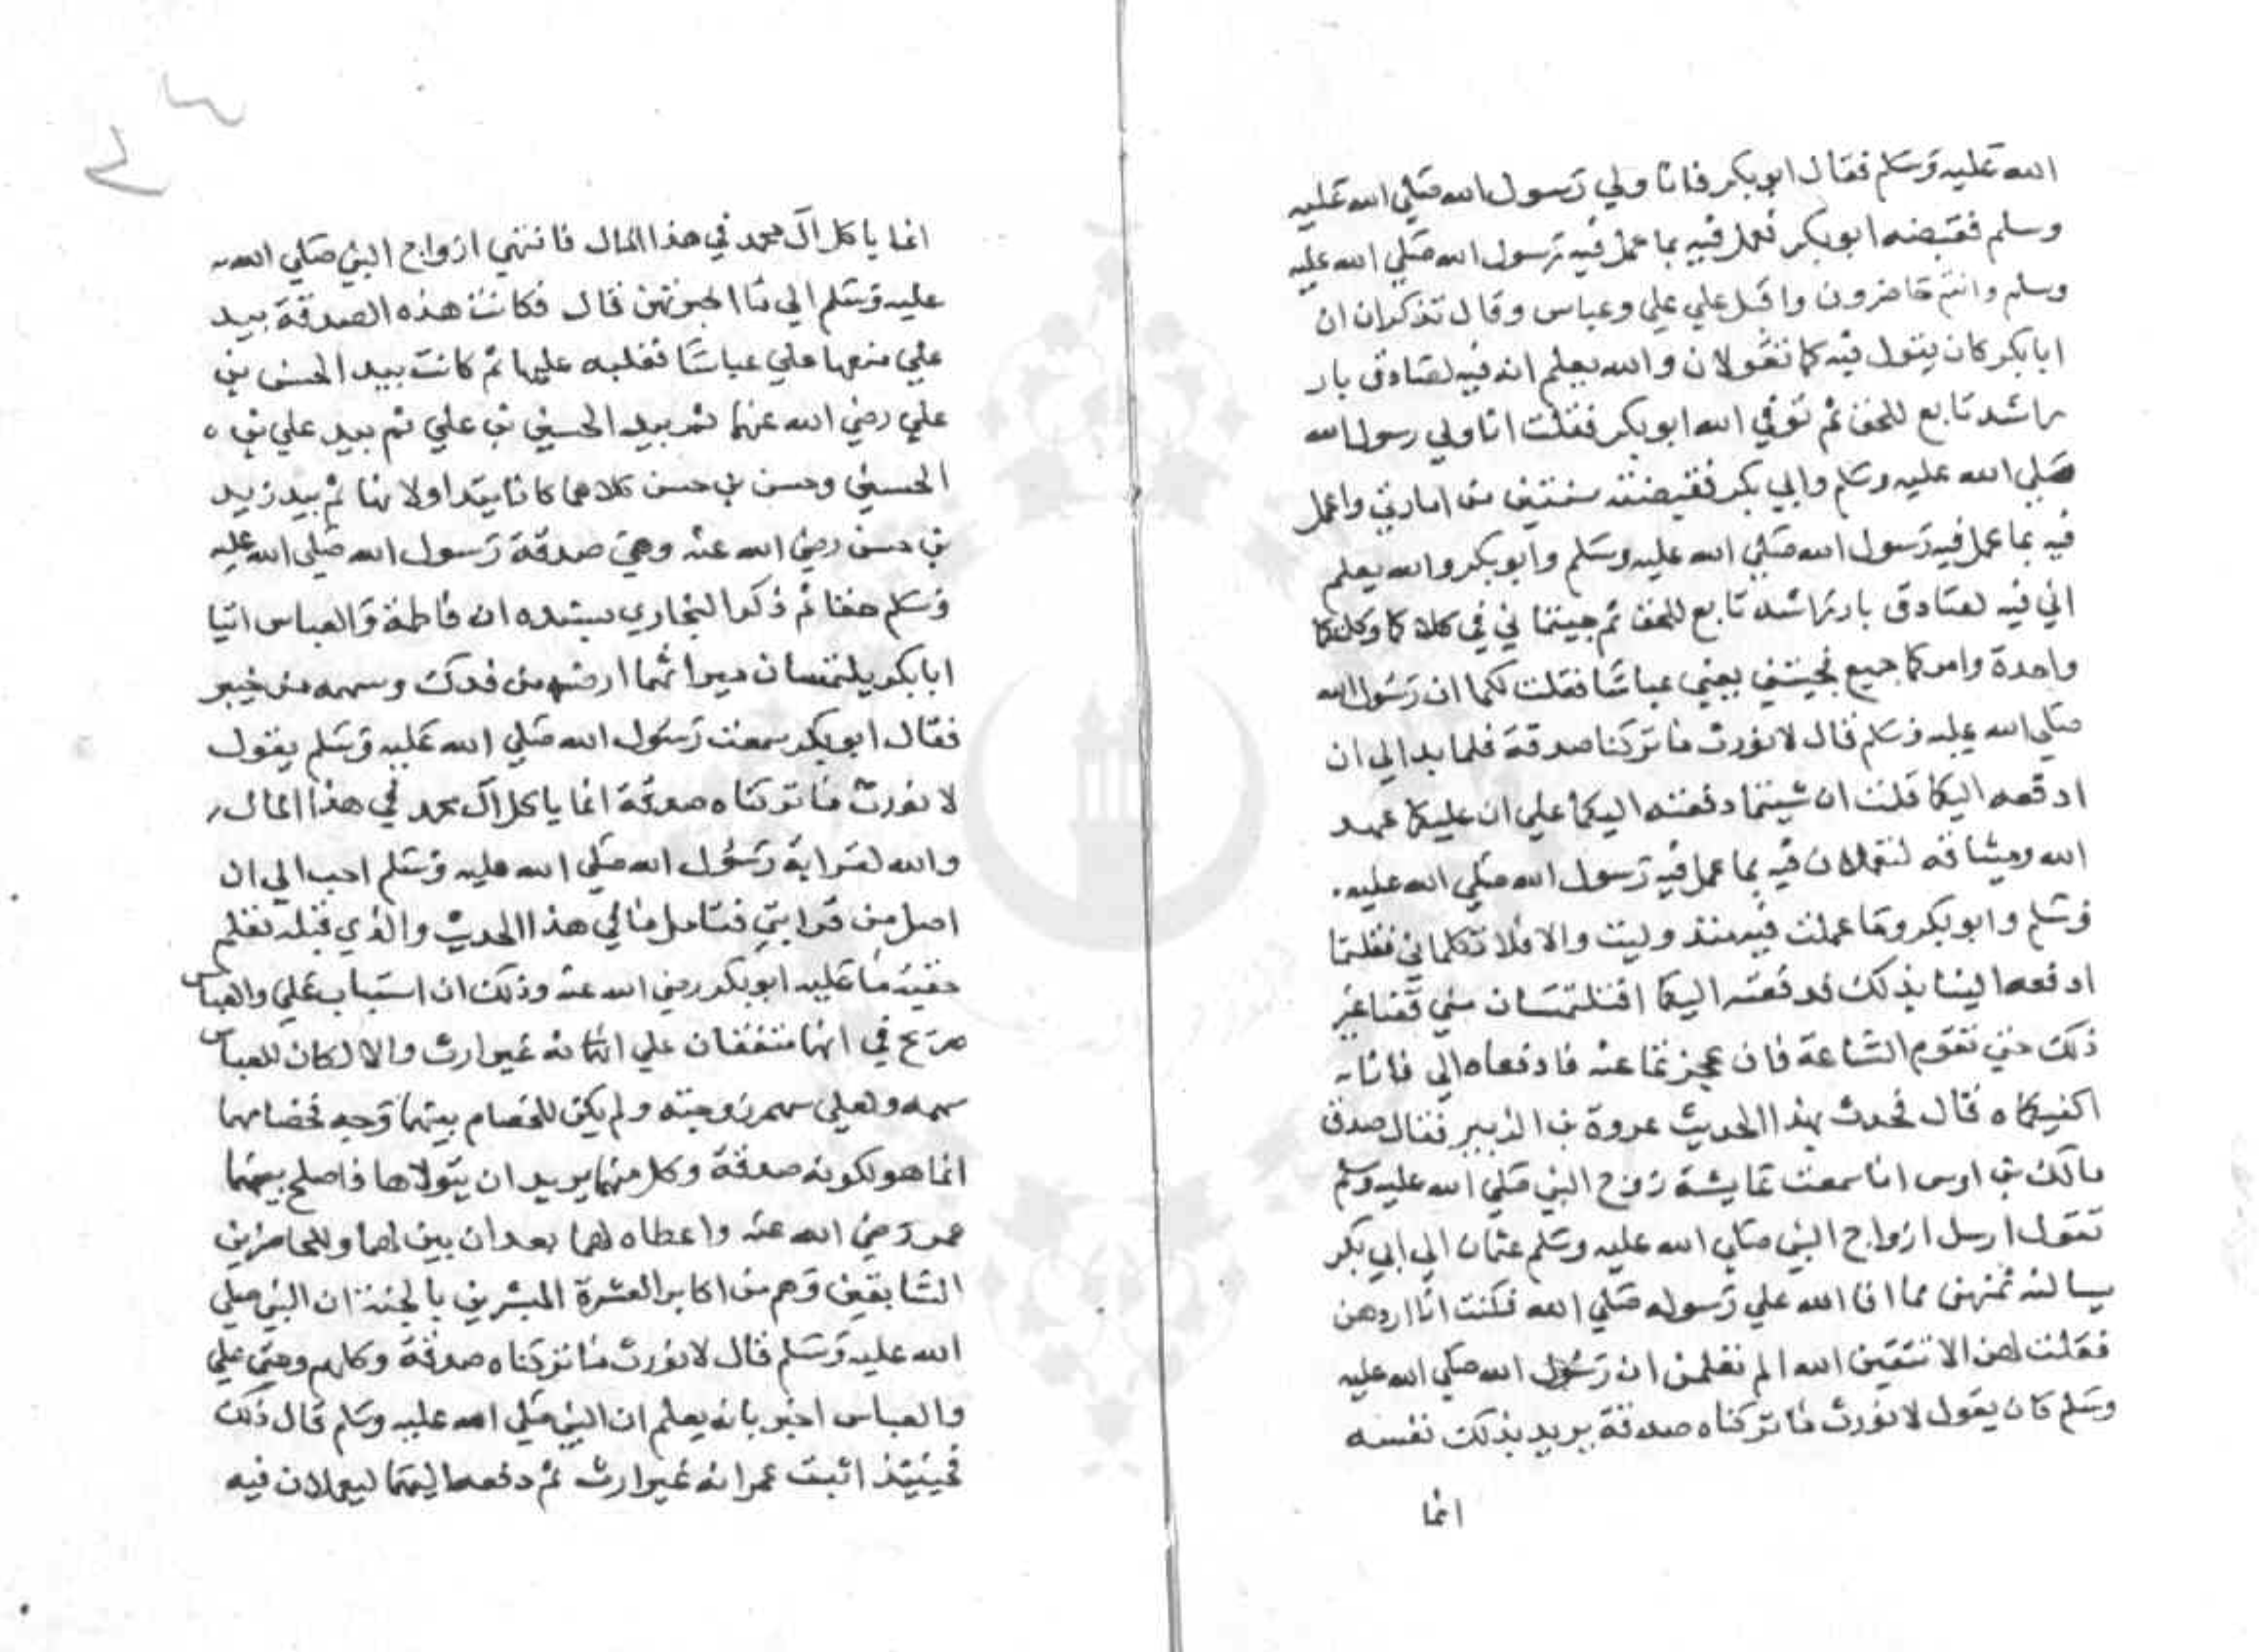 الله عليه وسلم فقال ابو بكر فانا ولي رسول الله صلي الله عليه
وسلم فقبضه ابو بكر فعمل فيه بما عمل فيه رسول الله صلي الله عليه
وسلم وانتم حاضرون واقبل علي علي وعباس وقال تذكران ان
ابا بكر كان يقول فيه كما تقولان والله يعلم انه فيه لصادق بار
راشد تابع للحق ثم توفي الله ابو بكر فقلت انا ولي رسول الله
صلي الله عليه وسلم وابي بكر فقبضته سنتين من امارتي واعمل
فيه بما عمل فيه رسول الله صلي الله عليه وسلم وابو بكر والله يعلم
اني فيه لصادق بار راشد تابع للحق ثم جيتماني في كلاكما وكلمتكما
واحدة وامركما جميع فجيتني يعني عباسا فقلت لكما ان رسول الله
صلي الله عليه وسلم قال لا نورث ما تركنا صدقة فلما بدا لي ان
ادفعه اليكما قلت ان شيتما دفعته اليكما علي ان عليكما عهد
الله وميثاقه لتعملان فيه بما عمل فيه رسول الله صلي الله عليه
وسلم وابو بكر وما عملت فيه منذ وليت والا فلا تكلماني فقلتما
ادفعه الينا بذلك فدفعته اليكما افتلتمسان مني قضا غير
ذلك حتي تقوم الساعة فان عجزتما عنه فادفعاه الي فانا
اكفيكماه قال فحدث بهذا الحديث عروة بن الزبير فقال صدق
مالك بن اوس انا سمعت عايشة زوج النبي صلي الله عليه وسلم
تقول ارسل ازواج النبي صلي الله عليه وسلم عثمان الي ابي بكر
يسالنه ثمنهن مما افا الله علي رسوله صلي الله فكنت انا اردهن
فقلت لهن الا تتقين الله الم تعلمن ان رسول الله صلي الله عليه
وسلم كان يقول لا نورث ما تركناه صدقة يريد بذلك نفسه
انما
انما ياكل آل محمد في هذا المال فانتهي ازواج النبي صلي الله
عليه وسلم الي ما اخبرتهن قال فكانت هذه الصدقة بيد
علي منعها علي عباسا فغلبه عليها ثم كانت بيد الحسن بن
علي رضي الله عنهما ثم بيد الحسين بن علي ثم بيد علي بن
الحسين وحسن بن حسن كلاهما كانا يتداولانها ثم بيد زيد
بن حسن رضي الله عنه وهي صدقة رسول الله صلي الله عليه
وسلم حقا ثم ذكر البخاري بسنده ان فاطمة والعباس اتيا
ابا بكر يلتمسان ميراثهما ارضه من فدك وسهمه من خيبر
فقال ابو بكر سمعت رسول الله صلي الله عليه وسلم يقول
لا نورث ما تركناه صدقة انما ياكل آل محمد في هذا المال
والله لقرابة رسول الله صلي الله عليه وسلم احب الي ان
اصل من قرابتي فتامل ما في هذا الحديث والذي قبله تعلم
حقية ما عليه ابو بكر رضي الله عنه وذلك ان استباب علي والعباس
صريح في انهما متفقان علي انه غير ارث والا لكان للعباس
سهمه ولعلي سهم زوجته ولم يكن للخصام بينهما وجه فخصامهما
انما هو لكونه صدقة وكل منهما يريد ان يتولاها فاصلح بينهما
عمر رضي الله عنه واعطاه لهما بعد ان بين لهما وللحاضرين
السابقين وهم من اكابر العشرة المبشرين بالجنة ان النبي صلي
الله عليه وسلم قال لا نورث ما تركناه صدقة وكلهم وحتي علي
والعباس اخبر بانه يعلم ان النبي صلي الله عليه وسلم قال ذلك
فحينيذ اثبت عمر انه غير ارث ثم دفعه اليهما ليعملان فيه